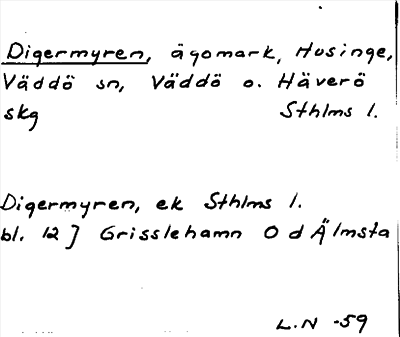 Digermyren, ägomark, Husinge,
Väddö sn, Väddö o. Häverö
skg Sthlms l.
Digermyren, ek Sthlms l.
bl. 12] Grisslehamn O d Älmsta
L.N -59